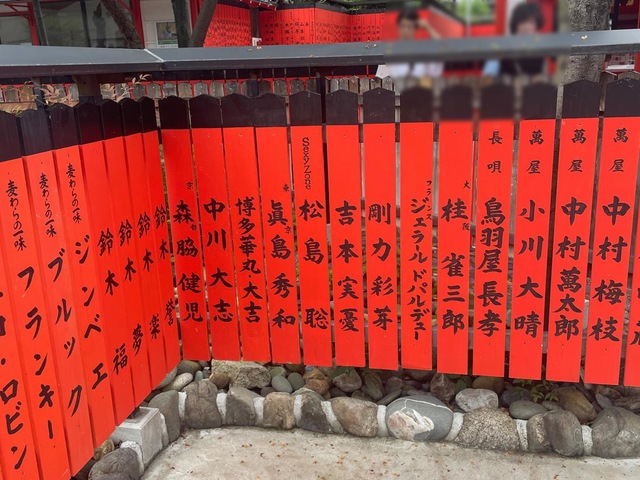 萬屋 中村梅枝
萬屋 中村萬太郎
萬屋 小川大晴
長唄 鳥羽屋長孝
大阪 桂雀三郎
フランス ジェラルドパルデュー
剛力彩芽
吉本実憂
SexyZone 松島聡
東京 眞島秀和
博多華丸大吉
中川大志
京 森脇健児
鈴木誉
鈴木楽
鈴木夢
鈴木福
麦わらの一味 ジンベエ
麦わらの一味 ブルック
麦わらの一味 フランキー
麦わらの一味 コ・ロビン